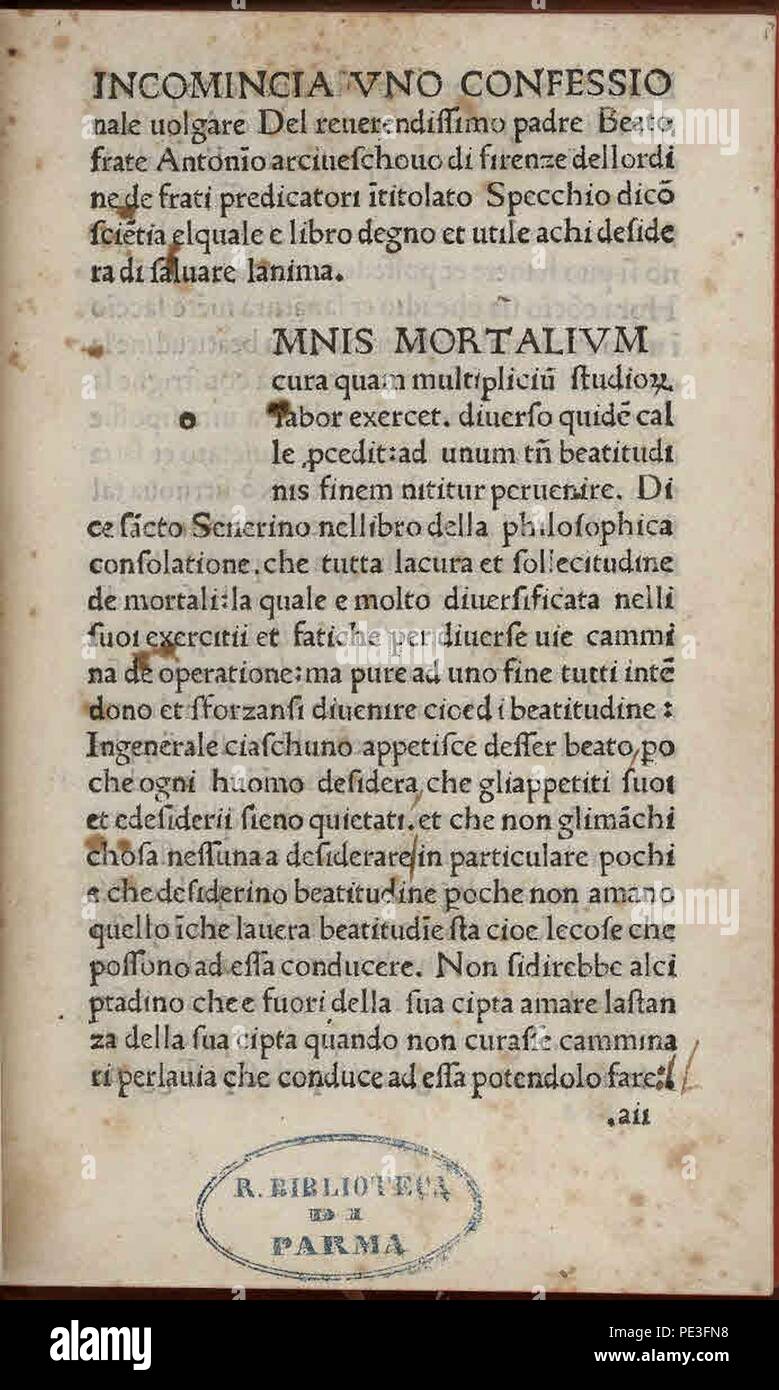 INCOMINCIA VNO CONFESSIO
nale uolgare Del reuerendiſſimo padre Beato
frate Antonīo arciueſchouo di firenze dellordi
ne de frati predicatori ītitolato Specchio dicō
ſciētia elquale e libro degno et utile achi deſide
ra di ſaluare lanima.
MNIS MORTALIVM
cura quam multipliciū ſtudioꝝ.
o labor exercet. diuerſo quidē cal
le ꝓcedit:ad unum tn̄ beatitudi
nis finem nititur peruenire. Di
ce ſācto Seuerino nellibro della philoſophica
conſolatione.che tutta lacura et ſollecitudine
de mortali:la quale e molto diuerſificata nelli
ſuoi exercitii et fatiche per diuerſe uie cammi
na de operatione:ma pure ad uno fine tutti intē
dono et ſforzanſi diuenire cioed i beatitudine :
Ingenerale ciaſchuno appetiſce deſſer beato,po
che ogni huomo deſidera,che gliappetiti ſuoi
et edeſiderii ſieno quietati.et che non glimāchi
choſa neſſuna a deſiderare/in particulare pochi
e che deſiderino beatitudine poche non amano
quello īche lauera beatitudīe ſta cioe lecoſe che
poſſono ad eſſa conducere. Non ſidirebbe alci
ptadino che e fuori della ſua cipta amare laſtan
za della ſua cipta quando non curaſſe cammina
ri perlauia che conduce ad eſſa potendolo fare:
.aii
R. BIBLIOTECA
DI
PARMA
alamy
alamy
alamy
alamy
PE3FN8
www.alamy.com